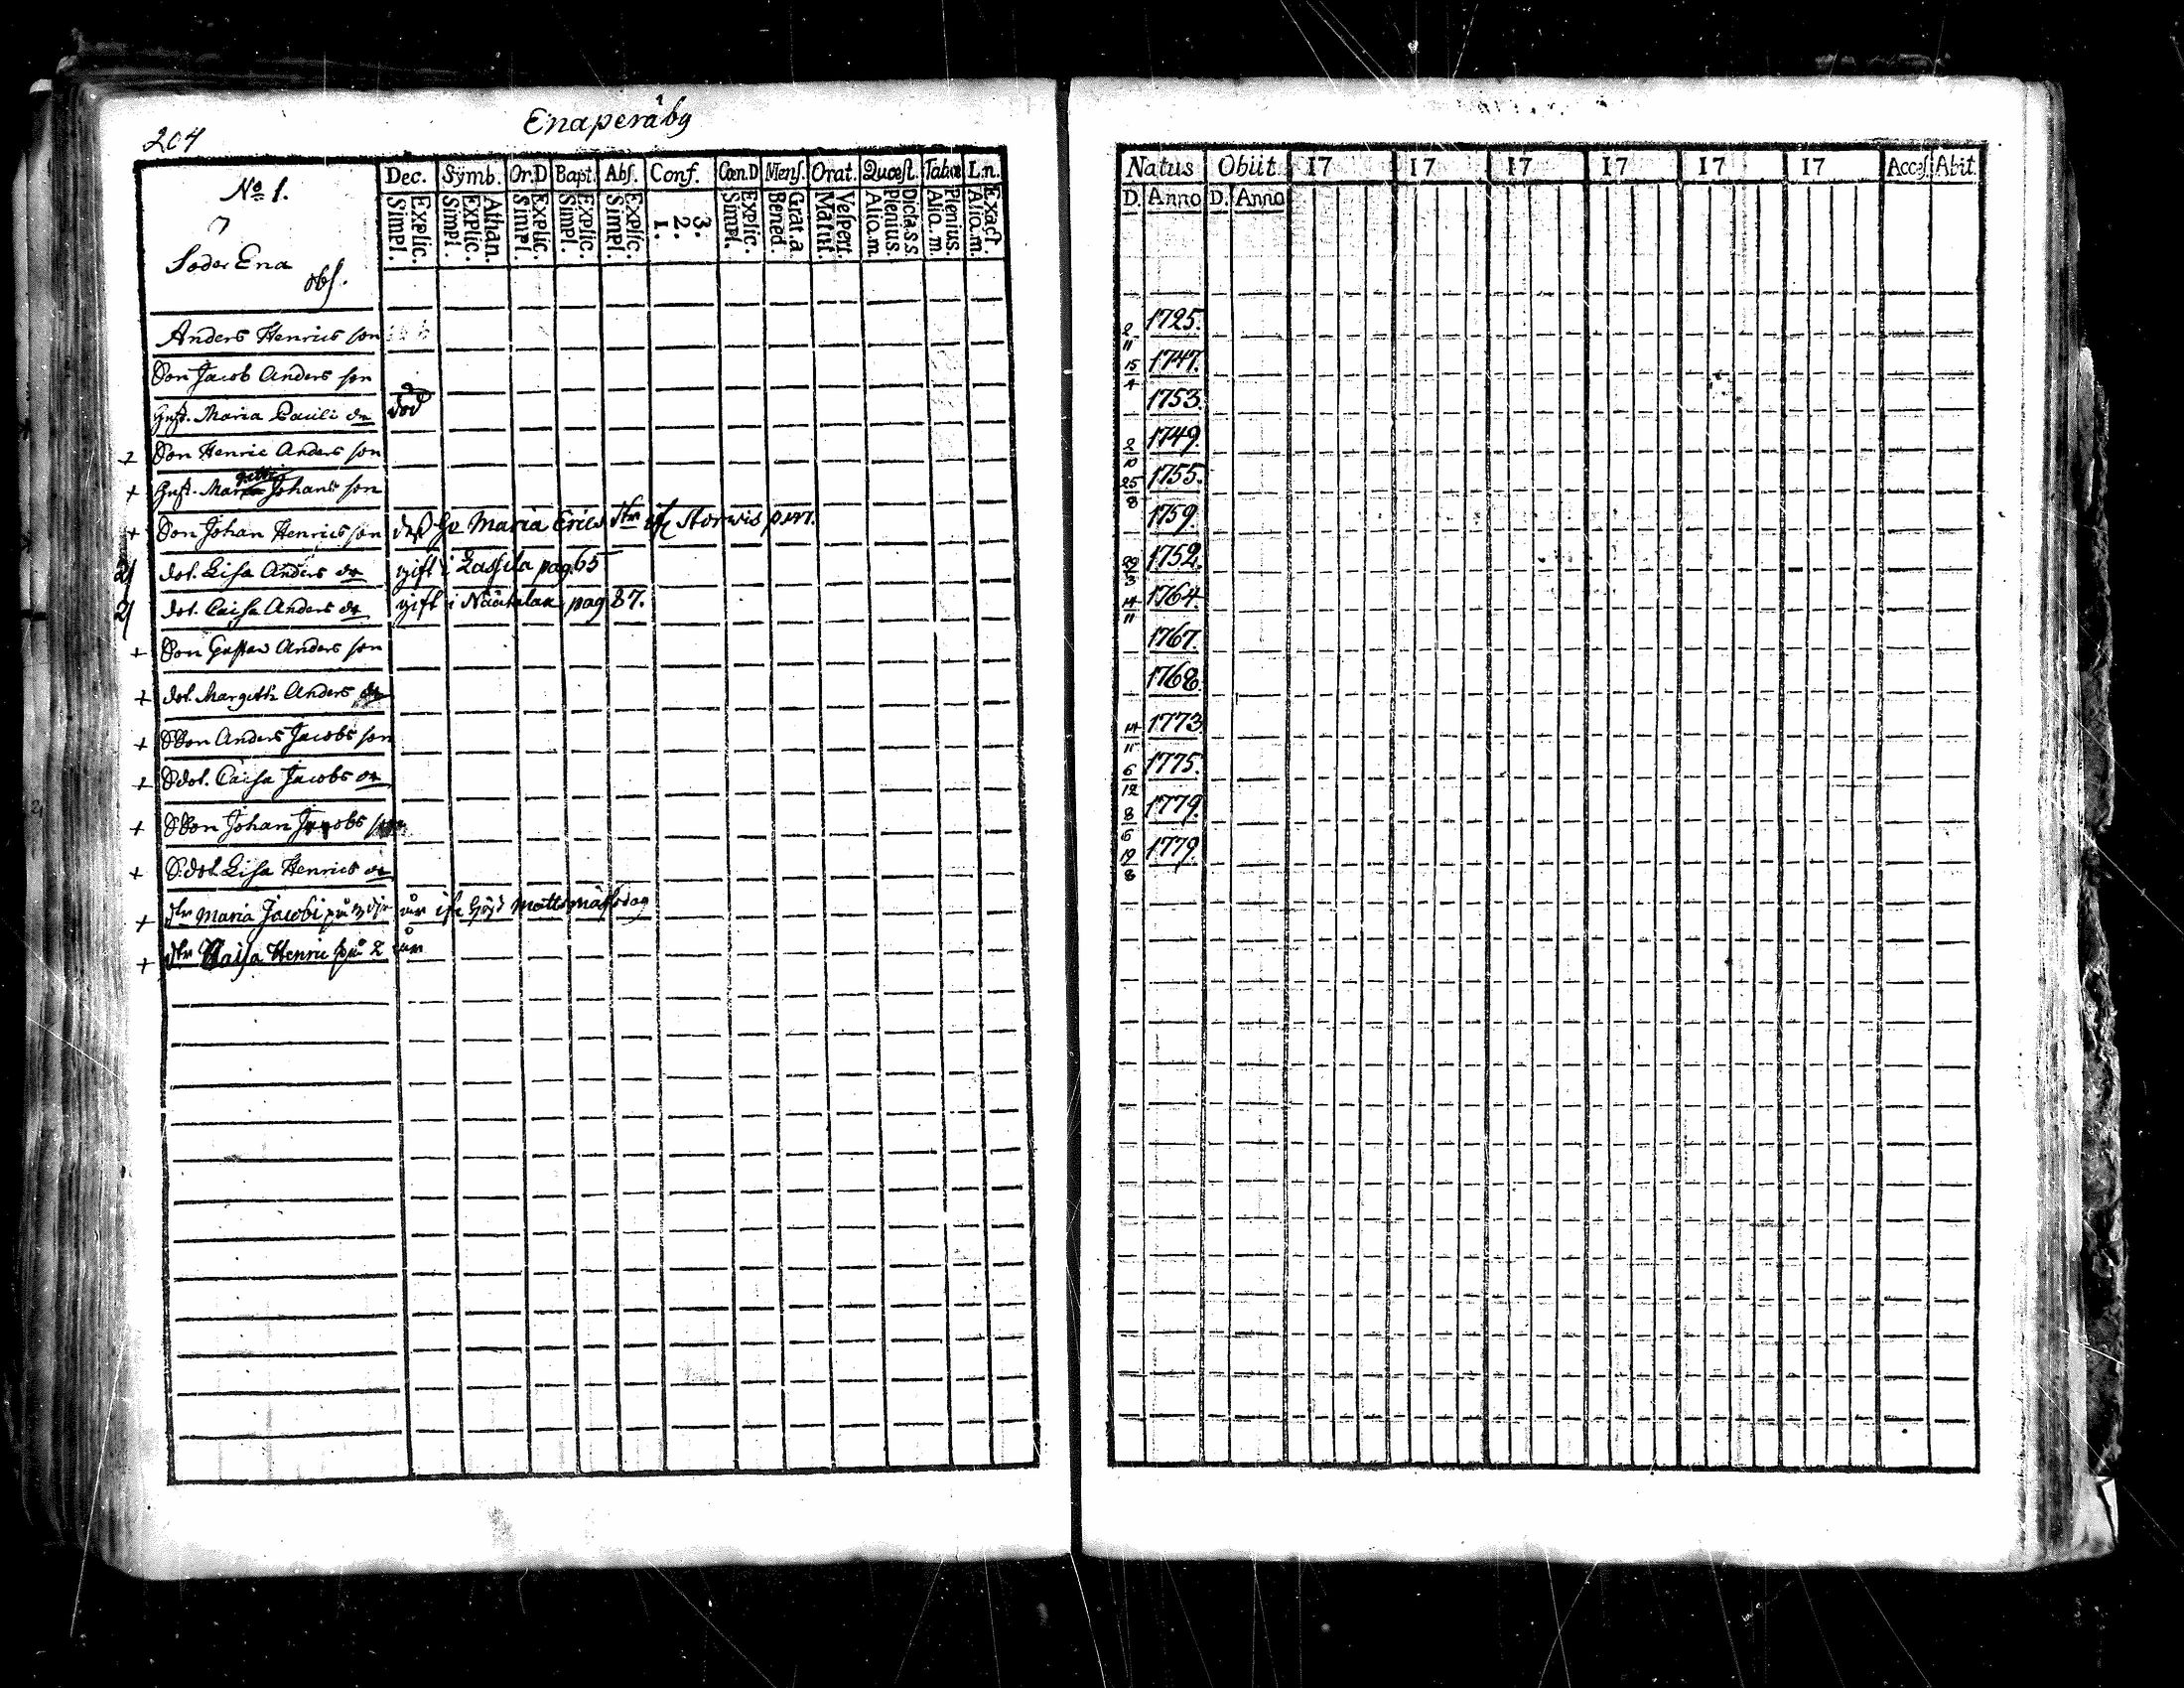 204
Enaperäby
No 1.
Söder Ena
obs.
Dec. Symb. Or.D Bapt. Abs. Conf. Cœn.D Mens. Orat. Quæst. Tabæ L.n.
Explic. Simpl. Athan. Explic. Simpl. Explic. Simpl. Explic. Simpl. Explic. Simpl. 3. 2. 1. Explic. Simpl. Grat.a Bened. Vespert. Matut. Dicta.s.s. Plenius. Aliq.m. Plenius. Aliq.m. Exact. Aliq.m.
Natus Obiit 17 17 17 17 17 17 Access Abit.
D. Anno D. Anno
Anders Henrics son 2/11 1725.
Son Jacob Anders son 15/4 1747.
Hust. Maria Pauli dr död 1753.
+ Son Henric Anders son 2/10 1749.
+ Hust. Johans son 25/8 1755.
+ Son Johan Henrics son Maria Erics dtr pag. 1759.
21 dot. Lisa Anders dr gift i Lassila pag. 65 29/3 1752.
21 dot. Caisa Anders dr gift i pag 87. 14/11 1764.
+ Son Gustav Anders son 1767.
+ dot. Margetta Anders dr 1768.
+ SSon Anders Jacobs son 14/11 1773
+ Sdot. Caisa Jacobs dr 6/12 1775.
+ SSon Johan Jacobs son 8/6 1779.
+ S.dot. Lisa Henrics dr 19/8 1779.
+ dtr Maria Jacobi på 3dje år
+ dtr Caisa Henric på 2 år